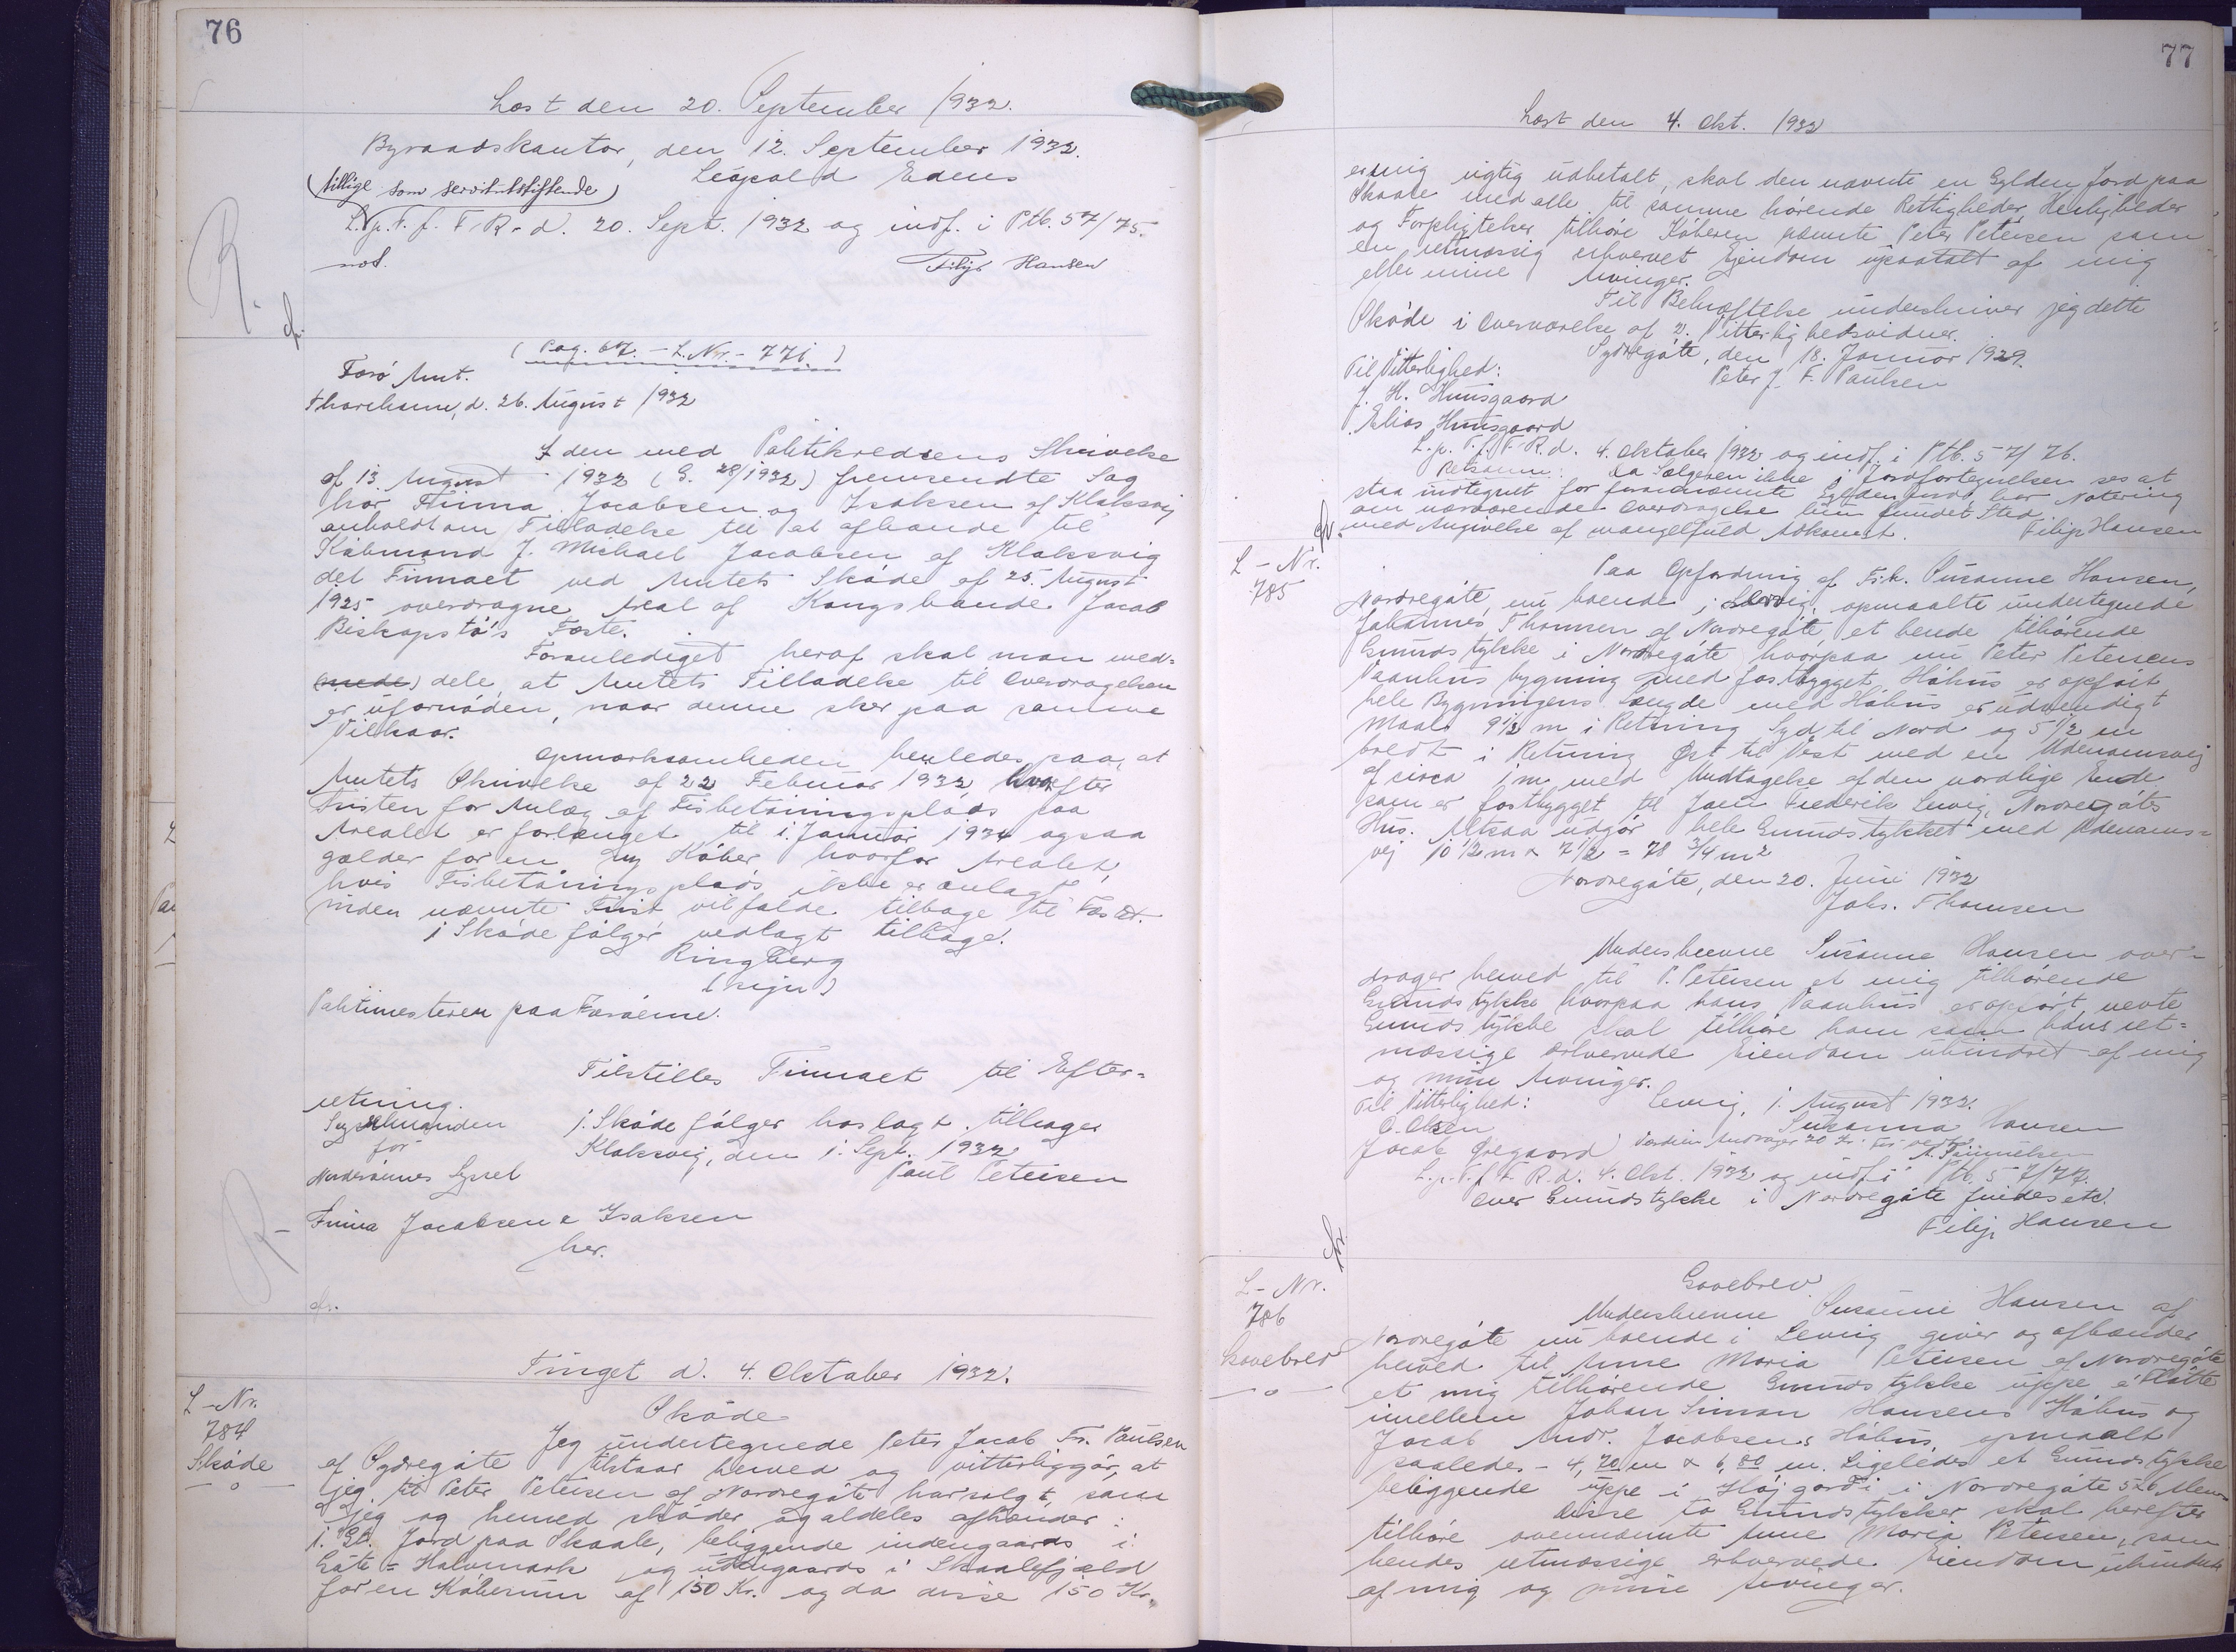 76
Læst den 20. September 1932.
Byraadskontor, den 12. September 1932.
(tillige som servitutstiftende) Leopold Edens
L. p. T. f. F. R. d. 20. Sept. 1932 og indf. i Ptb. 57/75.
Filip Hansen
R.
cfr.
(Pag. 67. - L. Nr. - 771.)
Færø Amt.
Thorshavn, d. 26. August 1932
I den med Politikredsens Skrivelse
af 13. August 1932 (G. 28/1932) fremsendte Sag
har Firma Jacobsen og Isaksen af Klaksvig
anholdt om Tilladelse til at afhænde til
Købmand J. Michael Jacobsen af Klaksvig
det Firmaet ved Amtets Skøde af 25. August
1925 overdragne Areal af Kongsbonde Jacob
Biskopstø's Fæste.
Foranlediget heraf skal man med=
(mede) dele, at Amtets Tilladelse til Overdragelsen
er ufornøden, naar denne sker paa samme
Vilkaar.
Opmærksomheden henledes paa, at
Amtets Skrivelse af 22 Februar 1932, hvorefter
Fristen for Anlæg af Fisketørringsplads paa
Arealet er forlænget til 1. Januar 1934 ogsaa
gælder for en ny Køber hvorfor Arealet,
hvis Fisketørringsplads ikke er anlagt
inden nævnte Frist, vil falde tilbage til Fæstet.
1 Skøde følger vedlagt tilbage.
Ringberg
(sign)
Politimesteren paa Færøerne.
Tilstilles Firmaet til Efter=
retning.
Sysselmanden 1. Skøde følger hoslagt tilbage
for Klaksvig, den 1. Sept. 1932
Norderøernes Syssel Paul Petersen
Firma Jacobsen & Isaksen
her.
R-
cfr.
Tinget d. 4. Oktober 1932.
L-Nr.
784
Skøde
Skøde
Jeg undertegnede Peter Jacob Fr. Paulsen
af Sydregøte tilstaar herved og vitterliggør, at
jeg til Peter Petersen af Nordregøte har solgt, som
jeg og herved skøder og aldeles afhænder:
1. Gl. Jord paa Skaale, beliggende indengaards i
Gøte = Halvmark og udengaards i Skaalefjæld
for en Købesum af 150 Kr. og da disse 150 Kr.
77
Læst den 4. Okt. 1932
er mig rigtig udbetalt, skal den nævnte en Gylden Jord paa
Skaale med alle til samme hørende Rettigheder, Herligheder
og Forpligtelser tilhøre Køberen nævnte Peter Petersen som
en retmæssig erhvervet Ejendom upaatalt af mig
eller mine Arvinger.
Til Bekræftelse underskriver jeg dette
Skøde i Overværelse af 2. Vitterlighedsvidner.
Sydregøte, den 18. Januar 1929.
Til Vitterlighed: Peter J. F. Paulsen
J. H. Huusgaard
Elias Huusgaard
L. p. T. f. F. R. d. 4. Oktober 1932 og indf. i Ptb. 57/76.
Retsanm: Da Sælgeren ikke i Jordfortegnelsen ses at
staa indtegnet for forannævnte Gylden Jord, har Notering
om nærværende Overdragelse kun fundet Sted
med Angivelse af mangelfuld Adkomst. Filip Hansen
cfr.
L-Nr.
785
Paa Opfordring af Frk. Susanne Hansen,
Nordregøte, nu boende i Lervig, opmaalte undertegnede
Johannes Thomsen af Nordregøte, et hende tilhørende
Grundstykke i Nordregøte, hvorpaa nu Peter Petersens
Vaanhus bygning med fastbygget Høhus er opført
hele Bygningens Længde med Høhus er udvendigt
Maal 9 1/2 m i Retning Syd til Nord og 5 1/2 m
bredt i Retning Øst til Vest med en Udenomsvej
af circa 1 m med Undtagelse af den nordlige Ende
som er fastbygget til Joen Frederik Lervig, Nordregøtes
Hus. Altsaa udgør hele Grundstykket med Udenoms=
vej 10 1/2 m x 7 1/2 = 78 3/4 m2
Nordregøte, den 20. Juni 1932
Johs. Thomsen
Underskrevne Susanne Hansen over=
drager herved til P. Petersen et mig tilhørende
Grundstykke hvorpaa hans Vaanhus er opført, nevte
Grundstykke skal tilhøre ham som hans ret=
mæssige erhvervede Eiendom uhindret af mig
og mine Arvinger.
Til Vitterlighed: Lervig, 1. August 1932.
O. Olsen Susanna Hansen
Jacob Gregaard Værdien Andrager 20 Kr.
L. p. T. f. F. R. d. 4. Okt. 1932 og indf. i Ptb. 57/77.
Over Grundstykke i Nordregøte findes etc.
Filip Hansen
cfr.
L-Nr.
786
Gavebrev
Gavebrev
Underskrevne Susanne Hansen af
Nordregøte nu boende i Lervig giver og afhænder
herved til Anne Maria Petersen af Nordregøte
et mig tilhørende Grundstykke uppe á Fløtte
imellem Johan Simon Hansens Høhus og
Jacob Andr. Jacobsens Høhus, opmaalt
saaledes - 4,70 m x 6,80 m. Ligeledes et Grundstykke
beliggende uppe i Høj gordi i Nordregøte 5x6 Alen
Disse to Grundstykker skal herefter
tilhøre ovennævnte Anne Maria Petersen, som
hendes retmæssige erhvervede Eiendom uhindret
af mig og mine Arvinger.